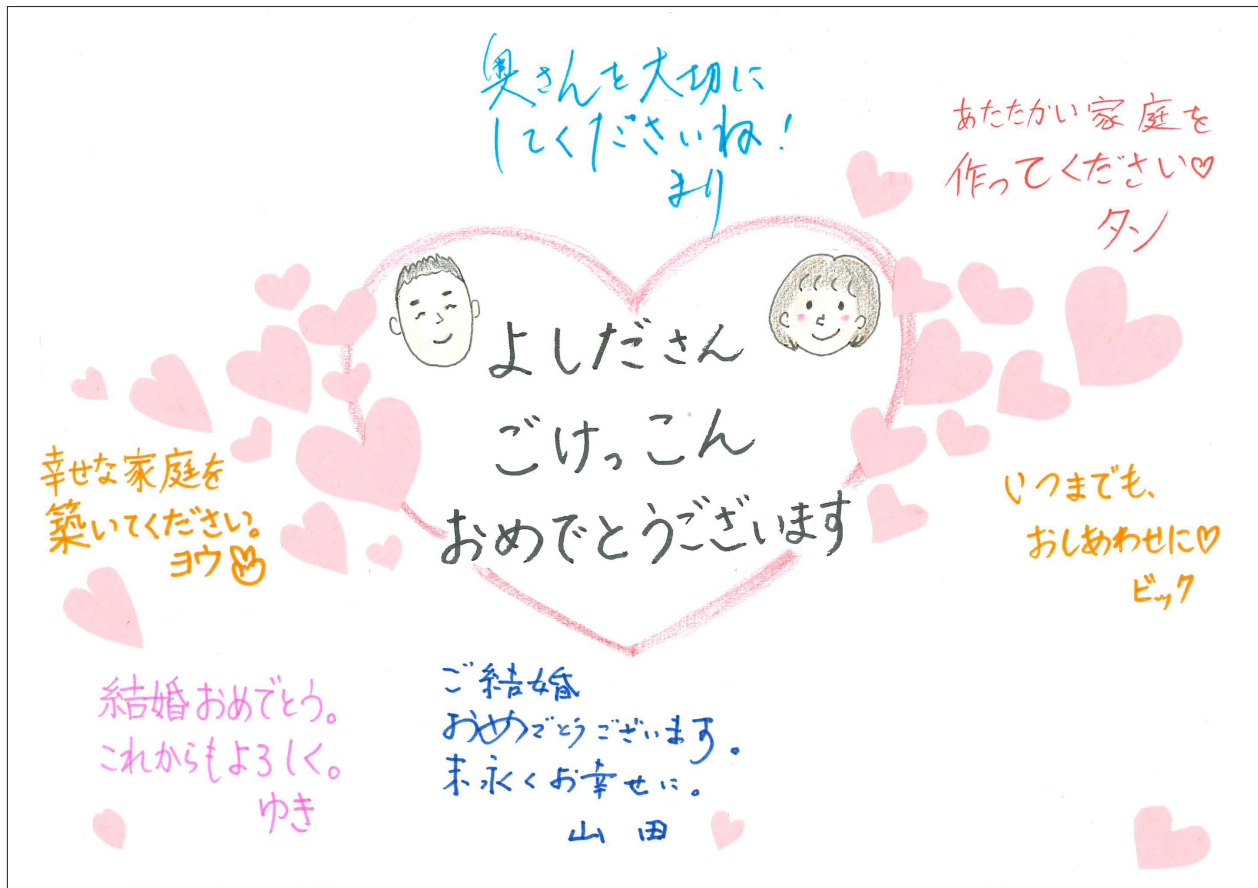 奥さんを大切に
してくださいね!
まり
あたたかい家庭を
作ってください♡
タン
よしださん
ごけっこん
おめでとうございます
幸せな家庭を
築いてください。
ヨウ
いつまでも、
おしあわせに♡
ビック
結婚おめでとう。
これからもよろしく。
ゆき
ご結婚
おめでとうございます。
末永くお幸せに。
山田